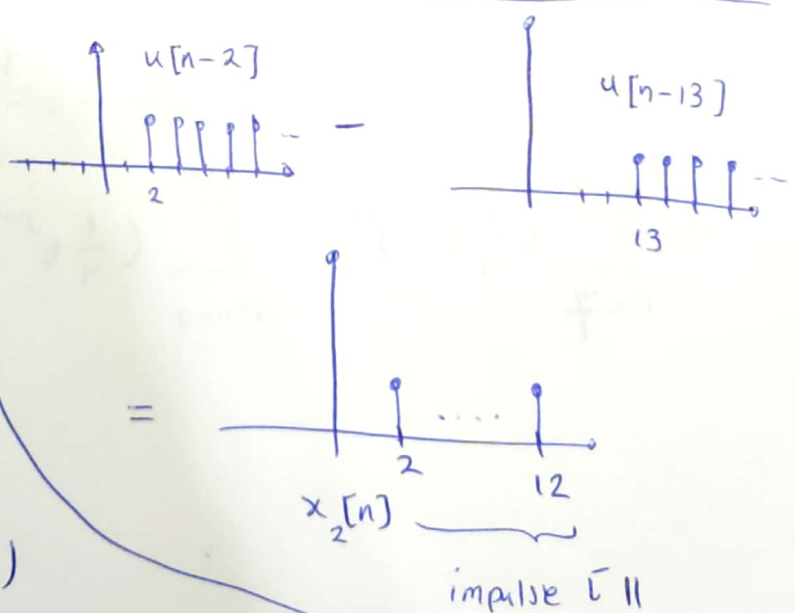 u[n-2]
-
u[n-13]
2
13
=
2
12
x₂[n]
)
impulse
11